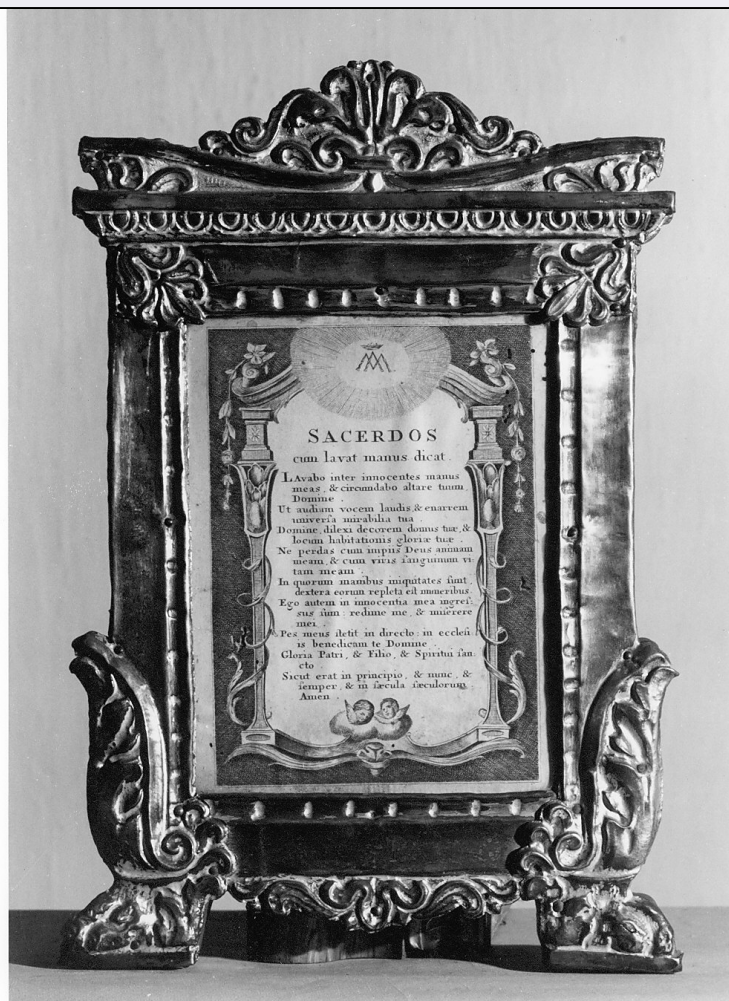 SACERDOS
cum lavat manus dicat.
LAvabo inter innocentes manus
meas, & circumdabo altare tuum
Domine.
Ut audiam vocem laudis, & enarrem
universa mirabilia tua.
Domine, dilexi decorem domus tuæ, &
locum habitationis gloriæ tuæ.
Ne perdas cum impiis Deus animam
meam, & cum viris sanguinum vi-
tam meam.
In quorum manibus iniquitates sunt,
dextera eorum repleta est muneribus.
Ego autem in innocentia mea ingres-
sus sum: redime me, & miserere
mei.
Pes meus stetit in directo: in ecclesi-
is benedicam te Domine.
Gloria Patri, & Filio, & Spiritui san-
cto.
Sicut erat in principio, & nunc, &
semper, & in sæcula sæculorum.
Amen.